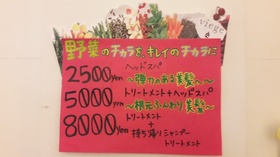 virge
野菜のチカラを、キレイのチカラに
ヘッドスパ
2500yen ～弾力のある美髪へ～
トリートメント+ヘッドスパ
5000yen ～根元ふんわり美髪～
トリートメント
+
8000yen 持ち帰りシャンプー
トリートメント